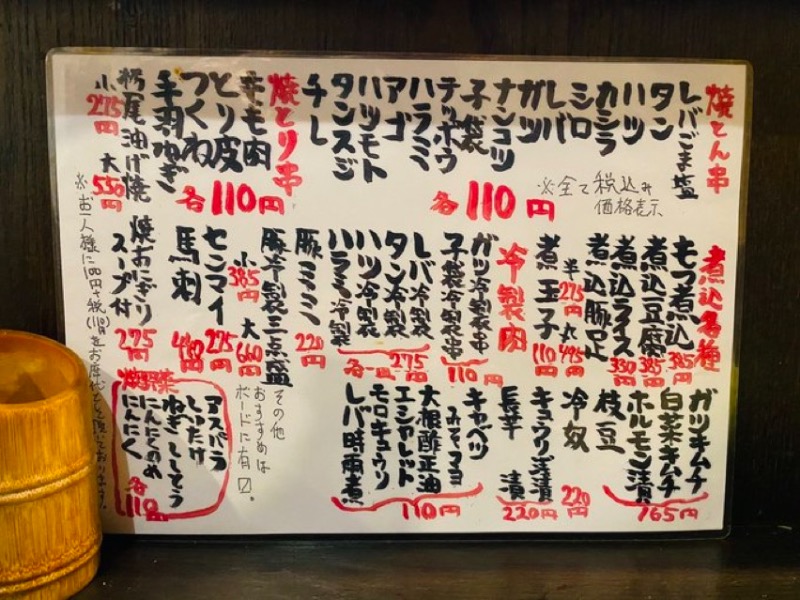 焼とん串
レバごま塩
タン
ハツ
カシラ
シロ
レバ
ガツ
ナンコツ
子袋
テッポウ
ハラミ
アゴ
ハツモト
タンスジ
チレ
各110円
※全て税込み
価格表示
焼とり串
とり皮
つくね
手羽ねぎ
各110円
栃尾油げ焼
小275円 大550円
煮込各種
モツ煮込 385円
煮込豆腐 385円
煮込ライス 330円
煮込豚足
半275円 丸495円
煮玉子 110円
冷製肉
ガツ冷製串
子袋冷製串
110円
レバ冷製
タン冷製
ハツ冷製
ハラミ冷製
各一皿275円
豚ミミ 220円
豚冷製三点盛
小385円 大660円
センマイ 275円
馬刺 440円
焼おにぎり
スープ付 275円
※お一人様に100円+税(110円)をお席代として頂いております。
ガツキムチ
白菜キムチ
ホルモン漬
165円
枝豆
冷奴
220円
キュウリ浅漬
長芋 漬
220円
キャベツ
みそマヨ
大根酢正油
エシャレット
モロキュウリ
レバ時雨煮
110円
その他
おすすめは
ボードに有〼。
焼野菜
アスパラ
しいたけ
ねぎ ししとう
にんにくのめ
にんにく
各110円